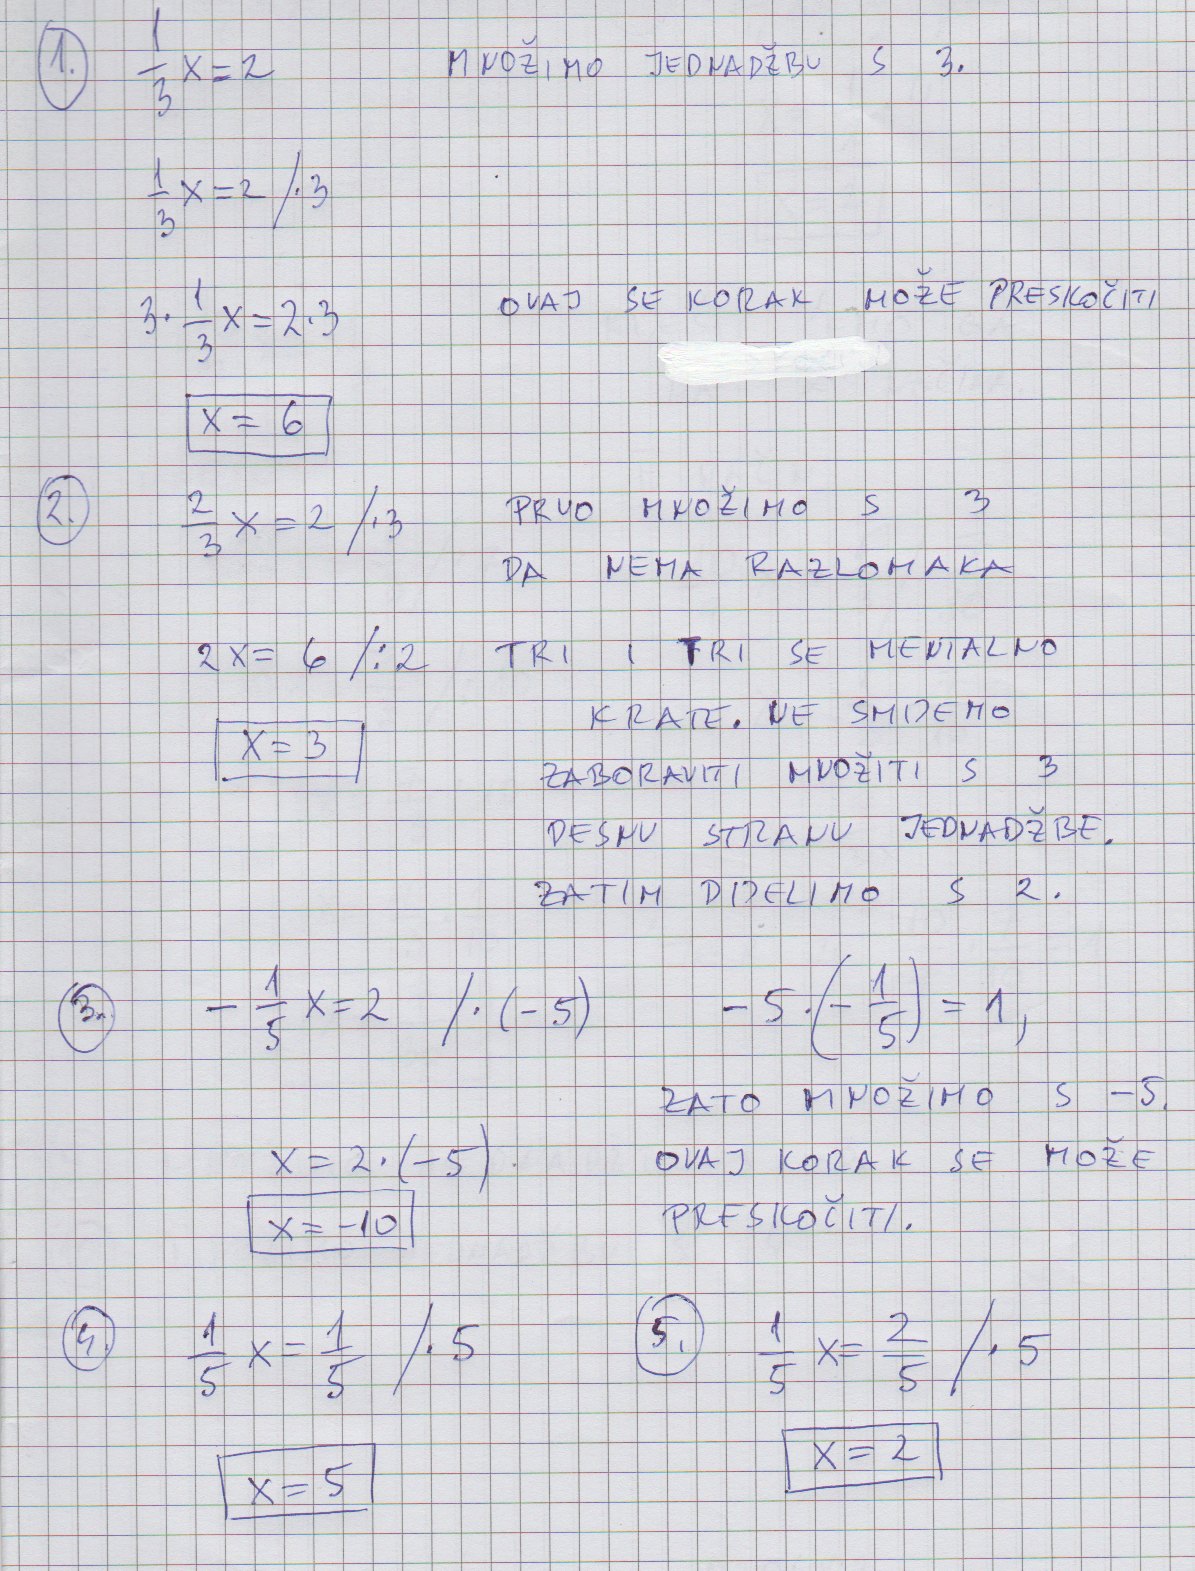 1. 1/3 x = 2 MNOŽIMO JEDNADŽBU S 3.
1/3 x = 2 /·3
3· 1/3 x = 2·3 OVAJ SE KORAK MOŽE PRESKOČITI
x = 6
2. 2/3 x = 2 /·3 PRVO MNOŽIMO S 3
DA NEMA RAZLOMAKA
2x = 6 /:2 TRI I TRI SE MENTALNO
KRATE. NE SMIJEMO
x = 3
ZABORAVITI MNOŽITI S 3
DESNU STRANU JEDNADŽBE.
ZATIM DIJELIMO S 2.
3. -1/5 x = 2 /·(-5) -5·(-1/5) = 1,
ZATO MNOŽIMO S -5.
x = 2·(-5) OVAJ KORAK SE MOŽE
x = -10 PRESKOČITI.
4. 1/5 x = 1/5 /·5 5. 1/5 x = 2/5 /·5
x = 5 x = 2